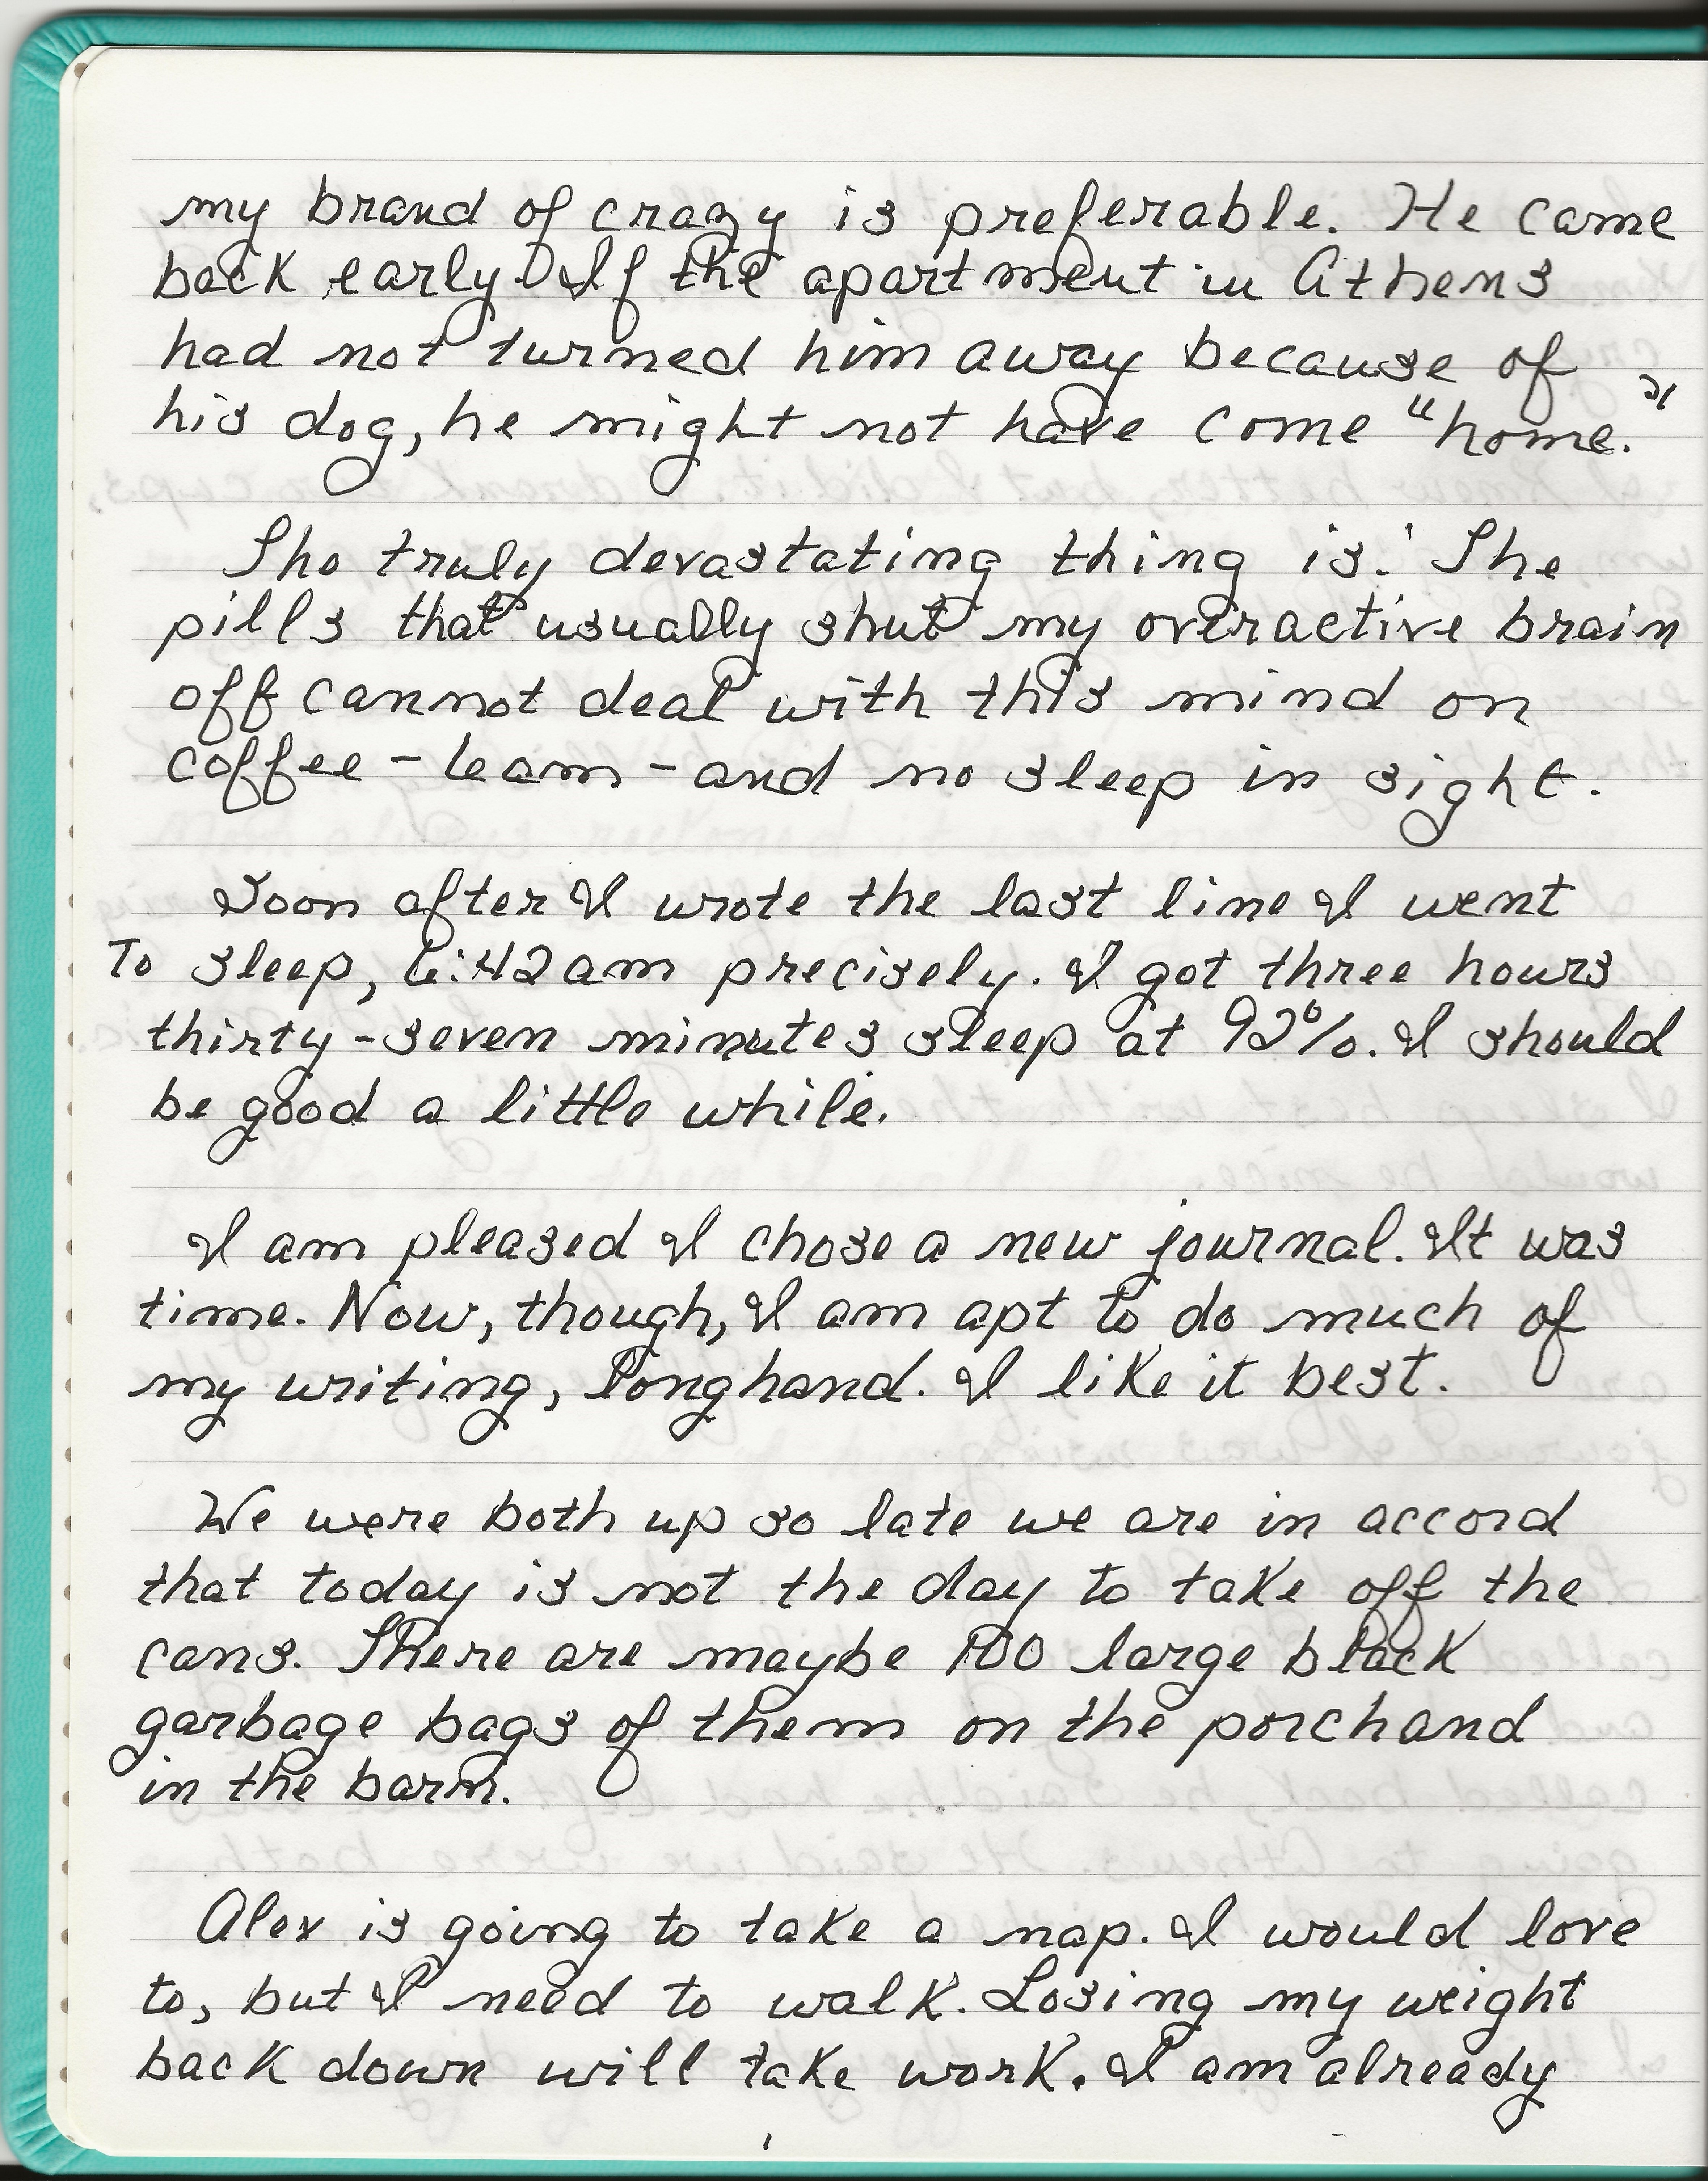 my brand of crazy is preferable. He came
back early. If the apartment in Athens
had not turned him away because of
his dog, he might not have come "home."
The truly devastating thing is: The
pills that usually shut my overactive brain
off cannot deal with this mind on
coffee - 6am - and no sleep in sight.
Soon after I wrote the last line I went
To sleep, 6:42am precisely. I got three hours
thirty-seven minutes sleep at 92%. I should
be good a little while.
I am pleased I chose a new journal. It was
time. Now, though, I am apt to do much of
my writing, longhand. I like it best.
We were both up so late we are in accord
that today is not the day to take off the
cans. There are maybe 100 large black
garbage bags of them on the porch and
in the barn.
Alex is going to take a nap. I would love
to, but I need to walk. Losing my weight
back down will take work. I am already